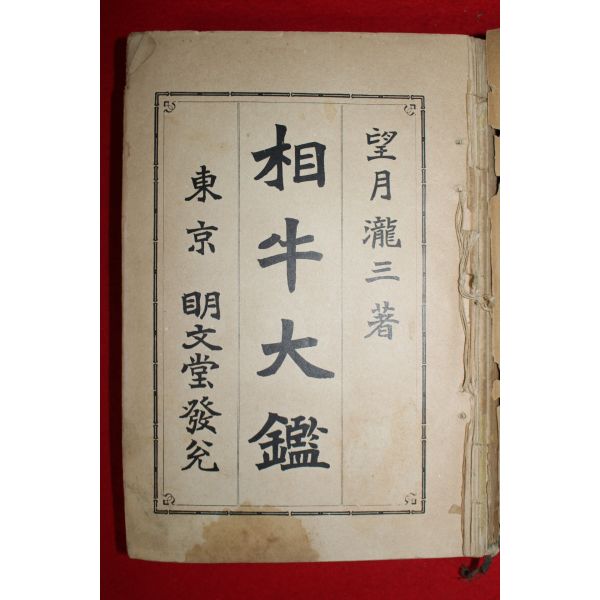 望月瀧三著
相牛大鑑
東京 明文堂發兌